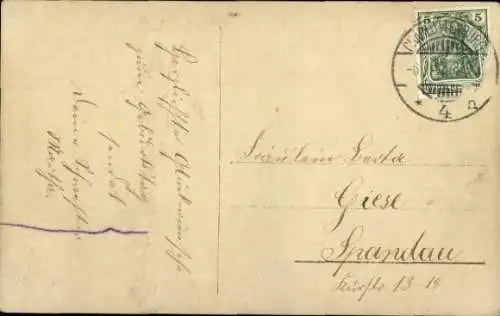 Herzlichste Glückwünsche
zum Geburtstag
sendet
Deine Schwester
Martha.
5 5
CHARLOTTENBURG
* 4 n
Fräulein Berta
Giese
Spandau
13-14